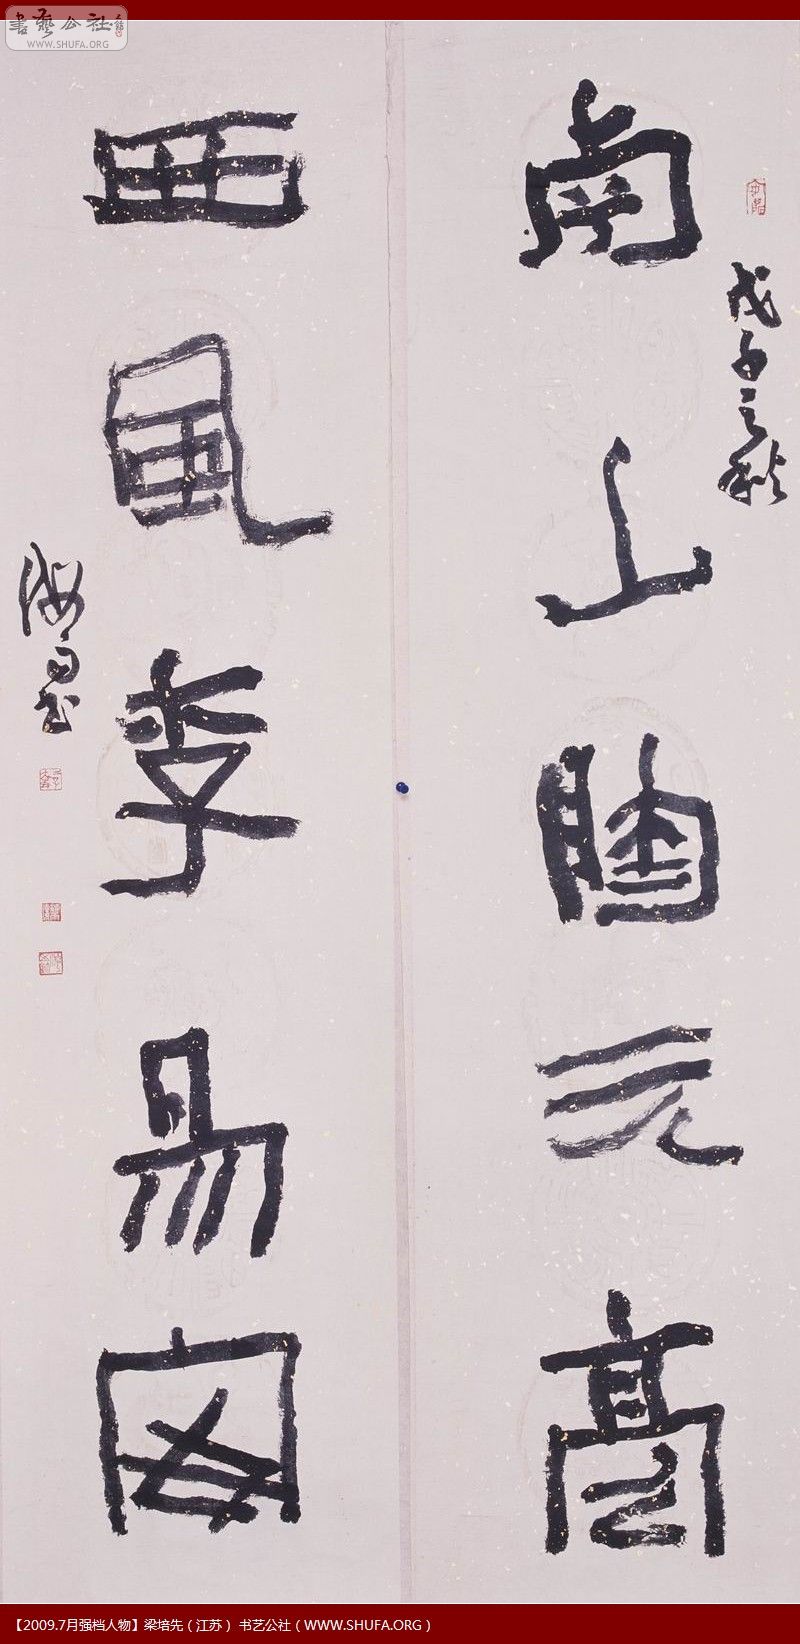 書藝公社
WWW.SHUFA.ORG
戊子之秋
南山陶元亮
西风李易安
【2009.7月强档人物】梁培先（江苏） 书艺公社（WWW.SHUFA.ORG）